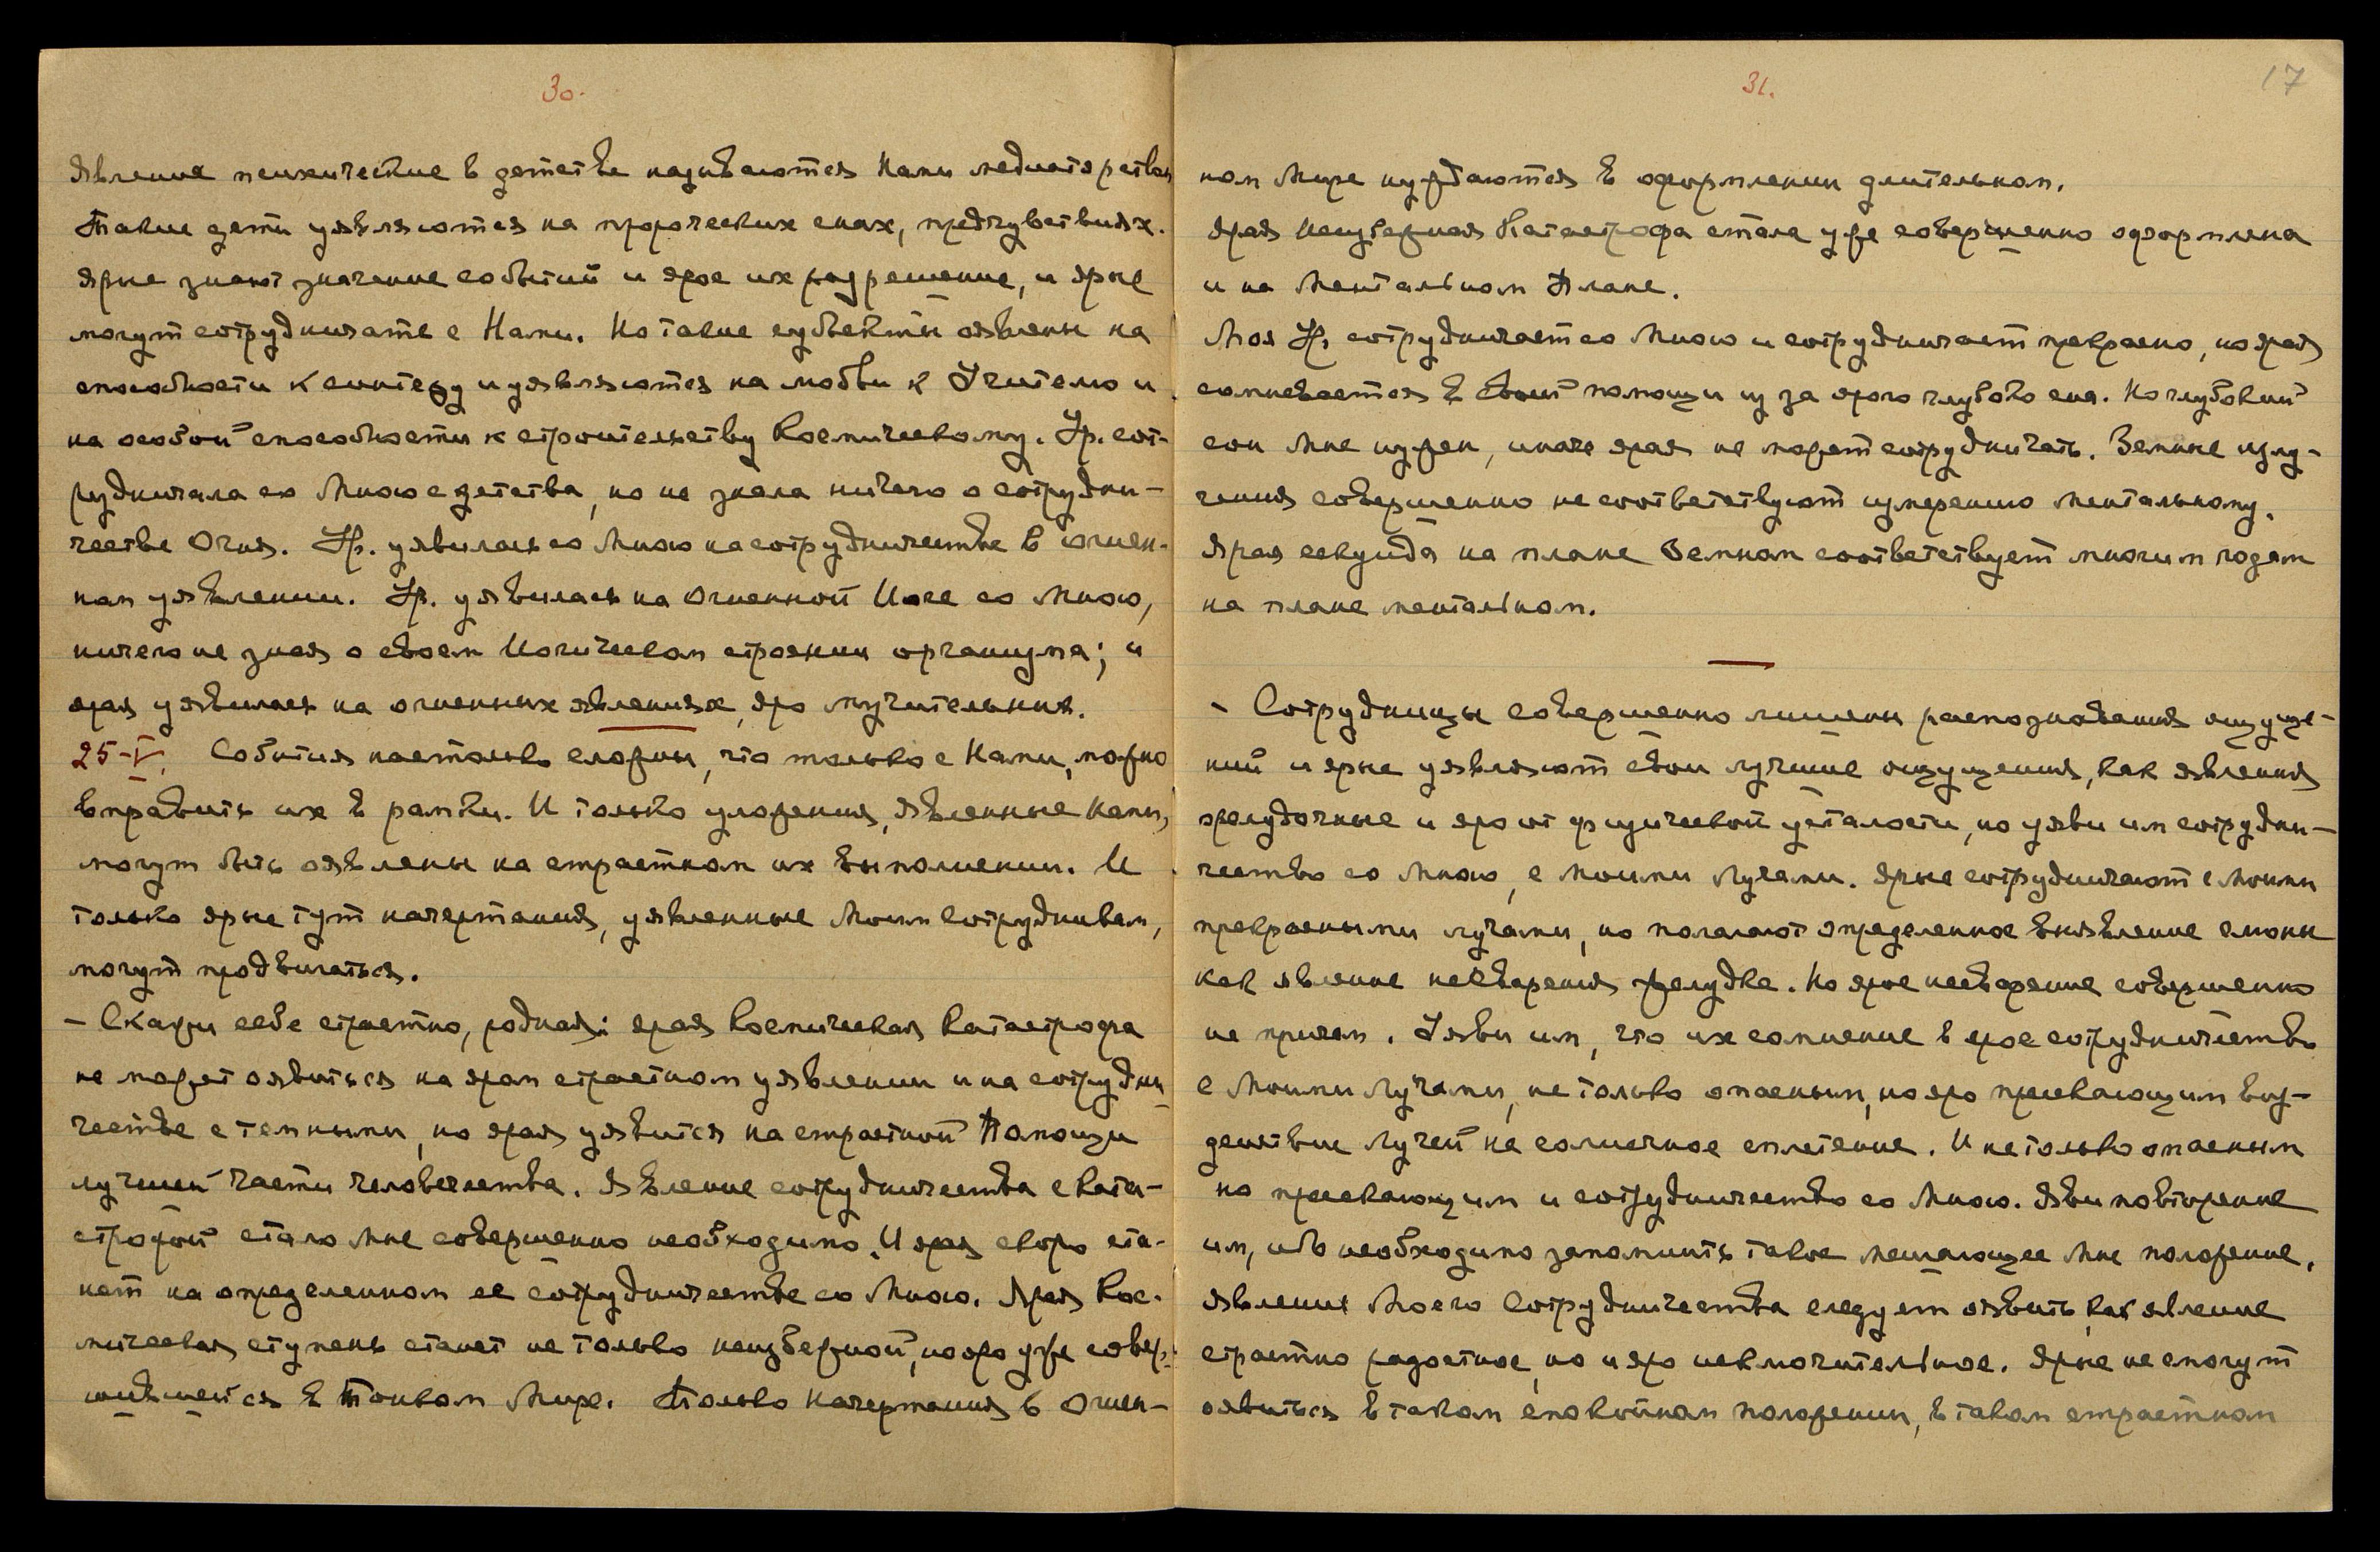 30.
Явления психические в детстве называются Нами медиаторством
Такие дети уявляются на пророческих снах, предчувствиях.
Ярые знают значение событий и ярое их разрешение, и ярые
могут сотрудничать с Нами. Но такие субъекты оявлены на
способности к синтезу и уявляются на любви к Учителю и
на особой способности к строительству Космическому. Ур. сот-
рудничала со Мною с детства, но не знала ничего о сотрудни-
честве Огня. Ур. уявилась со Мною на сотрудничестве в огнен-
ном уявлении. Ур. уявилась на Огненной Йоге со Мною,
ничего не зная о своем Йогическом строении организма; и
ярая уявилась на огненных явлениях, яро мучительных.
25-V. События настолько сложны, что только с Нами, можно
вправить их в рамки. И только уложения, явленные Нами,
могут быть оявлены на страстном их выполнении. И
только ярые тут начертания, уявленные Моим Сотрудником,
могут продвигаться.
- Скажи себе страстно, родная: ярая Космическая Катастрофа
не может оявиться на яром страстном уявлении и на сотрудни
честве с темными, но ярая уявится на страстной Помощи
лучшей части человечества. Явление сотрудничества с Ката-
строфой стало Мне совершенно необходимо. И ярая скоро ста-
нет на определенном ее сотрудничестве со Мною. Ярая Кос-
мическая ступень станет не только неизбежной, но яро уже совер-
шившейся в Тонком Мире. Только Начертания в Огнен-
31.
17
ном Мире нуждаются в оформлении длительном.
Ярая Неизбежная Катастрофа стала уже совершенно оформлена
и на Ментальном Плане.
Моя Ур. сотрудничает со Мною и сотрудничает прекрасно, но ярая
сомневается в своей помощи из за ярого глубоко сна. Но глубокий
сон Мне нужен, иначе ярая не может сотрудничать. Земные излу-
чения совершенно не соответствуют измерению ментальному.
Ярая секунда на плане Земном соответствует многим годам
на плане ментальном.
- Сотрудницы совершенно лишены распознавания ощуще-
ний и ярые уявляют свои лучшие ощущения, как явления
желудочные и яро от физической усталости, но уяви им сотрудни-
чество со Мною, с Моими Лучами. Ярые сотрудничают с Моими
прекрасными лучами, но полагают определенное выявление
как явление несварения желудка. Но ярое несварение совершенно
не причем. Уяви им, что их сомнение в ярое сотрудничество
с Моими Лучами, не только опасным, но яро пресекающим воз-
действие Лучей на солнечное сплетение. И не только опасным
но пресекающим и сотрудничество со Мною. Яви повторение
им, ибо необходимо запомнить такое мешающее Мне положение.
Явления Моего Сотрудничества следует оявить, как явление
страстно радостное, но и яро исключительное. Ярые не смогут
оявиться в таком спокойном положении, в таком страстном